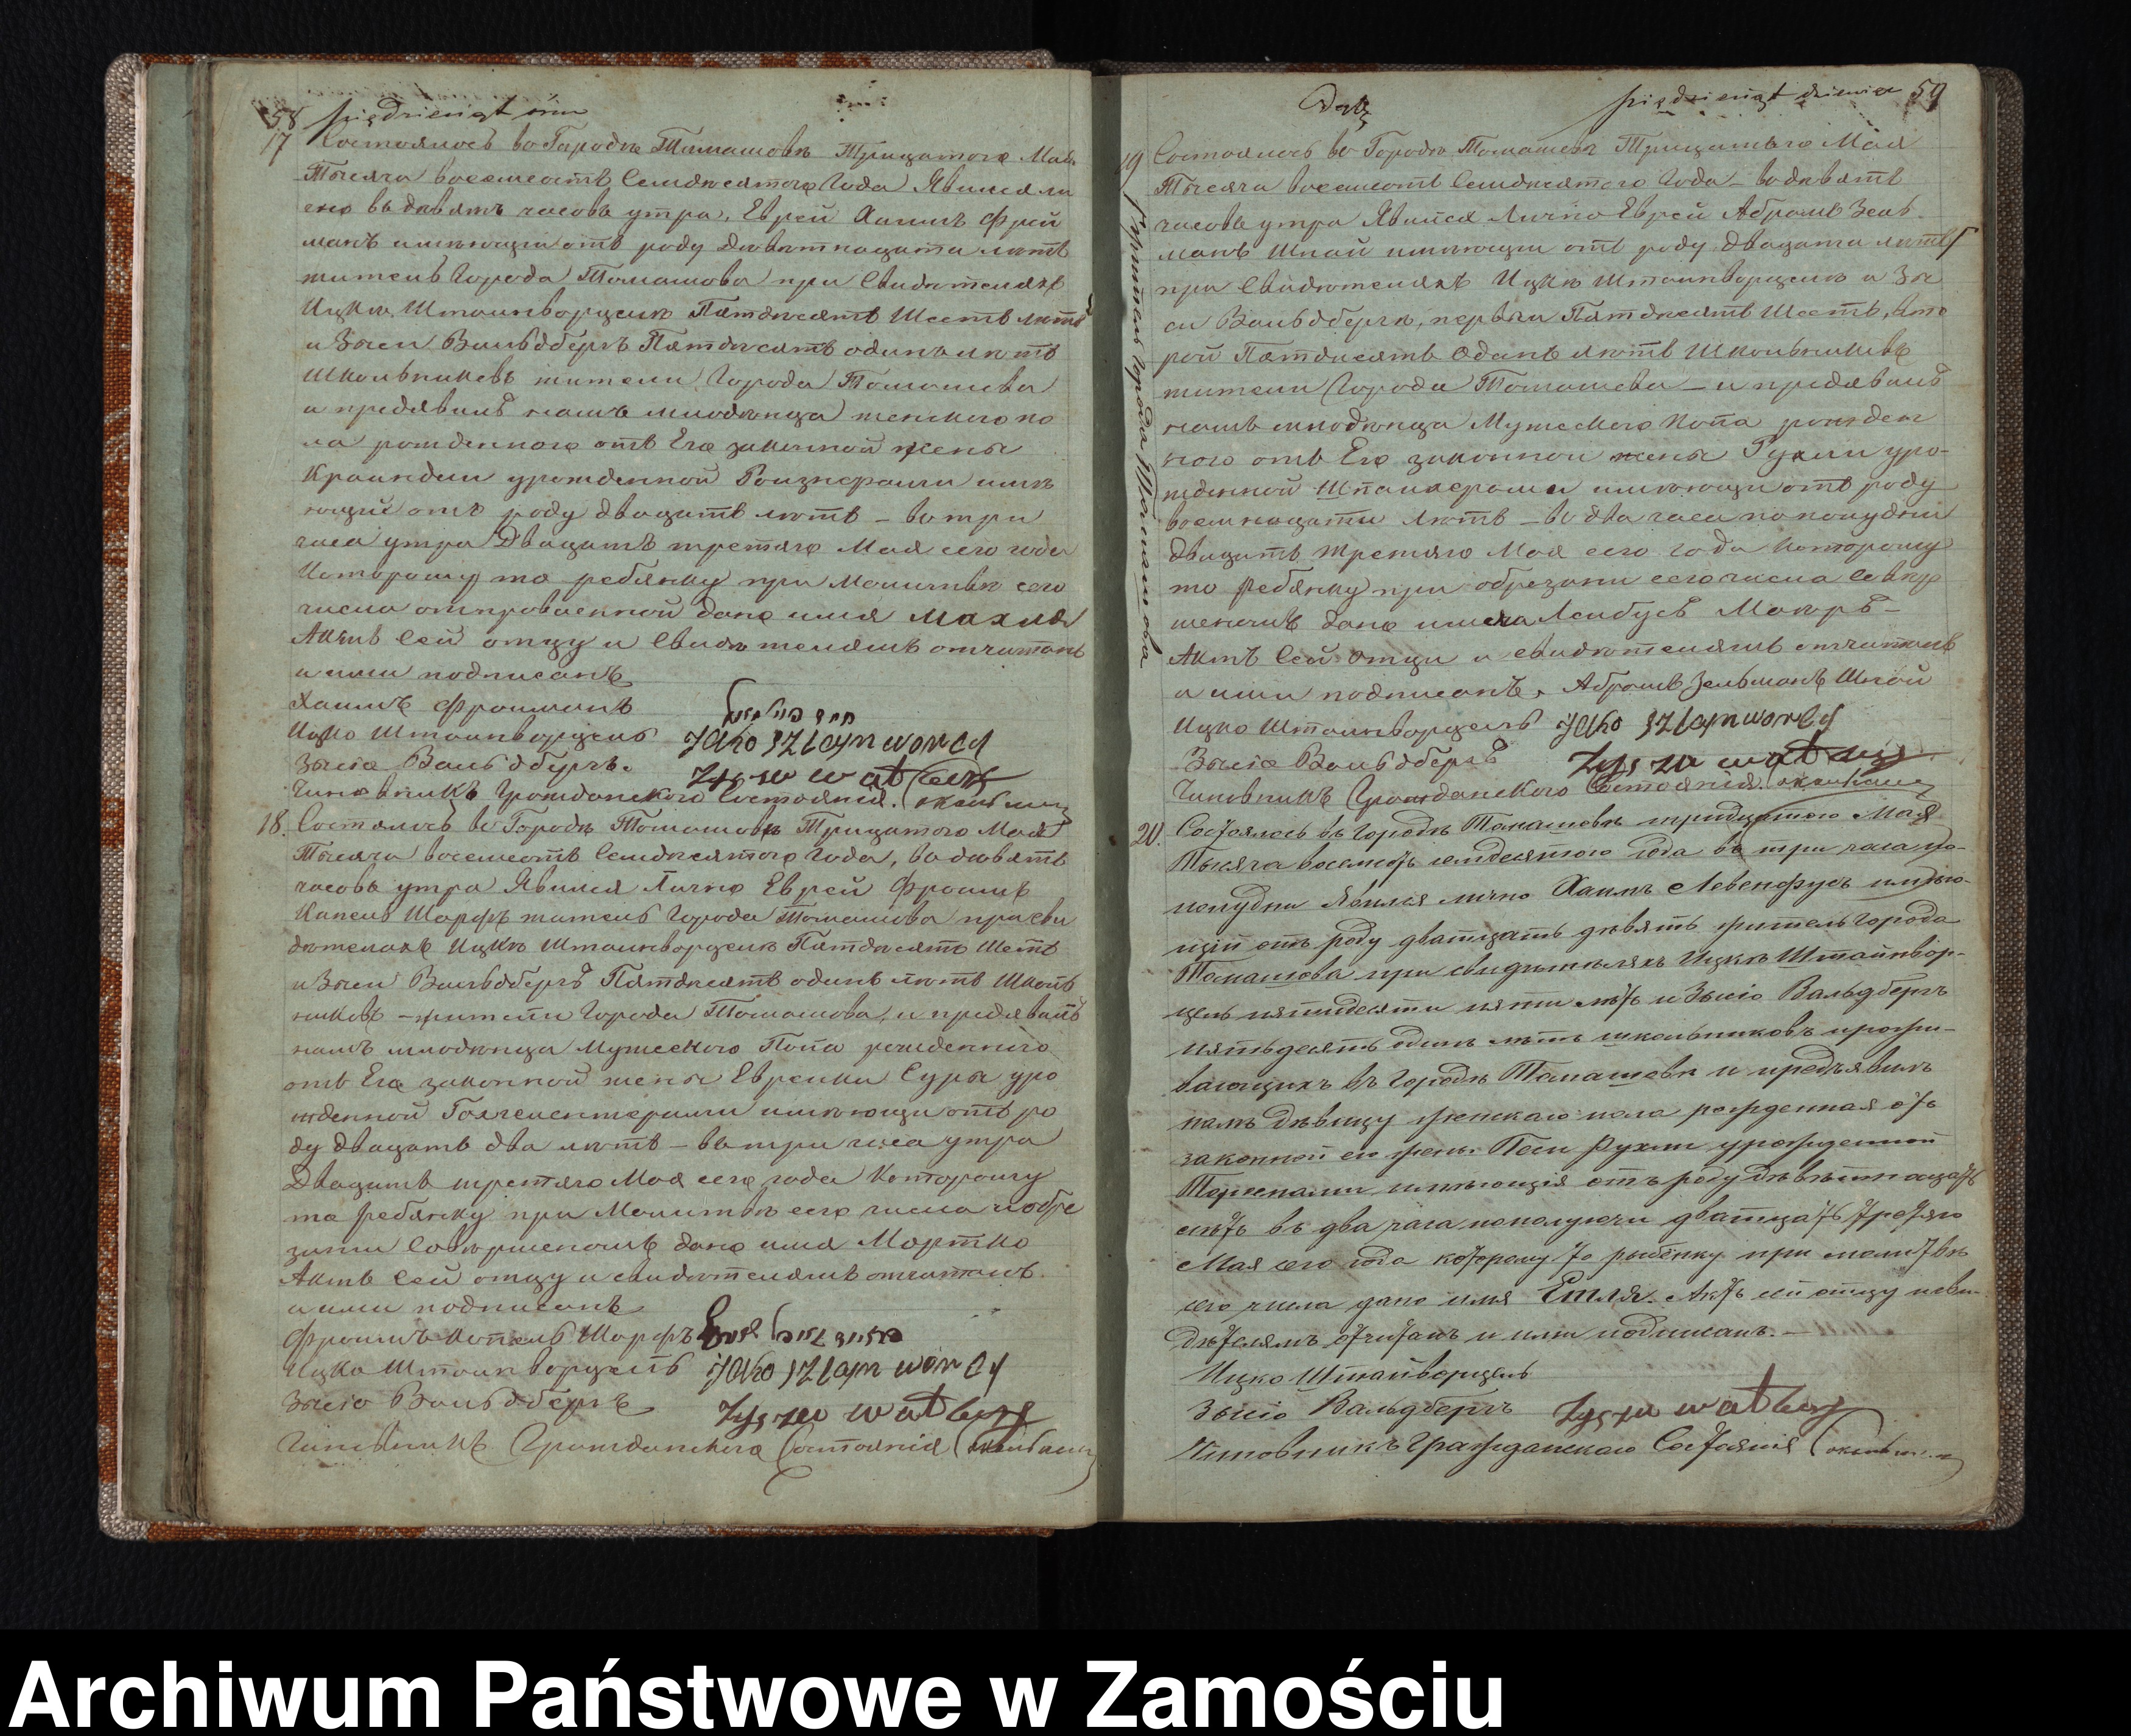 58 piędziesiąt ósm
17 Состоялось во Городѣ Томашовѣ Тридцатого Мая
Тысяча восемсотъ Семдѣсятого Года Явился ли
сно въ давять часовъ утра, Еврей Хаимъ Фрой
манъ имѣющи отъ роду девятнадцати лѣтъ
житель Города Томашова при Свидѣтеляхъ
Ицкѣ Штаинворцель Пятдѣсятъ Шесть лѣтъ
и Зыси Вальдбергъ Пятдѣсятъ одинъ лѣтъ
Школьниковъ жители Города Томашова
и предявилъ намъ младѣнца женского по
ла рожденного отъ Его законной жены
Крайндли урожденной имѣ
ющій отъ роду двацать лѣтъ – во три
часа утра Двацать третяго Мая сего года
Которому то ребянку при Молитвѣ сего
числа отправленной дано имя Махля
Актъ Сей отцу и Свидѣтелямъ отчитанъ
и ими подписанъ
Хаимъ Фройманъ
Ицко Штаинворцель Icko Sztaynworcl
Зысю Вальдбергъ. Zysu Watberg
Чиновникъ Гражданского Состоянія.
18. Состоялось во Городѣ Томашовѣ Тридцатого Мая
Тысяча восемсотъ Семдѣсятого Года, во давять
часовъ утра Явился Лично Еврей Фроимъ
Капель Шарфъ житель Города Томашова при сви
дѣтеляхъ Ицкѣ Штаинворцель Пятдѣсятъ Шесть
и Зыси Вальдбергъ Пятдѣсятъ одинъ лѣтъ Школь
никовъ – жители Города Томашова, и предявилъ
намъ младѣнца Мужеского Пола рожденного
отъ Его законной жены Еврейки Суры уро
жденной имѣющи отъ ро
ду двацать два лѣтъ – въ три часа утра
Двацать третяго Мая сего года Которому
то ребянку при Молитвѣ сего числа и обре
зани Совершеномъ дано имя Мортко
Актъ Сей отцу и свидѣтелямъ отчитанъ.
и ими подписанъ
Фроимъ Капель Шарфъ
Ицко Штаинворцель Icko Sztaynworcl
Зысю Вальдбергъ Zysu Watberg
Чиновникъ Гражданского Состоянія
piędziesiąt dziewięć 59
19 Состоялось во Городѣ Томашовѣ Тридцатого Мая
Тысяча восемсотъ Семдѣсятого Года – во давять
часовъ утра Явился Лично Еврей Абрамъ Зель
манъ Шпай имѣющи отъ роду двацати лѣтъ
при Свидѣтеляхъ Ицкѣ Штаинворцель и Зы
си Вальдбергъ, первый Пятдѣсятъ Шесть, вто
рой Пятдѣсятъ Одинъ лѣтъ Школьниковъ
жители Города Томашова – и предявилъ
намъ младѣнца Мужеского Пола рожден
ного отъ Его законной жены Рухли уро-
жденной имѣющи отъ роду
восемнадцати лѣтъ – во два часа пополудни
двацать третяго Мая сего года которому
то ребянку при обрезани сего числа Совер
шеномъ дано имя Лейбусъ Мокръ –
Актъ Сей отцу и свидѣтелямъ отчитанъ
и ими подписанъ, Абрамъ Зельманъ Шпай
Ицко Штаинворцель Icko Sztaynworcl
Зысю Вальдбергъ Zysu Watberg
Чиновникъ Гражданского Состоянія.
житель Города Томашова
20. Состоялось въ Городѣ Томашовѣ тридцатого Мая
Тысяча восемсотъ семдесятого Года въ три часа по-
полудни явился лично Хаимъ Левенфусъ имѣю-
щій отъ роду дватцать девять житель Города
Томашова при свидѣтеляхъ Ицкѣ Штайнвор-
цель пятидесяти пяти лѣтъ и Зысю Вальдбергъ
пятьдесятъ одинъ лѣтъ школьниковъ прожи-
вающихъ въ Городѣ Томашовѣ и предъявилъ
намъ дѣвицу женскаго пола рожденная отъ
законной его жены Песи Рухли урожденной
имѣющія отъ роду дѣвятнацать
лѣтъ въ два часа пополуночи дватцать третяго
Мая сего года которому то рыбёнку при молитвѣ
сего числа дано имя Етля. Актъ сей отцу и сви-
дѣтелямъ отчитанъ и ими подписанъ. –
Ицко Штайворцель
Зысю Вальдбергъ Zysu Watberg
Чиновникъ Гражданскаго Состоянія
Archiwum Państwowe w Zamościu